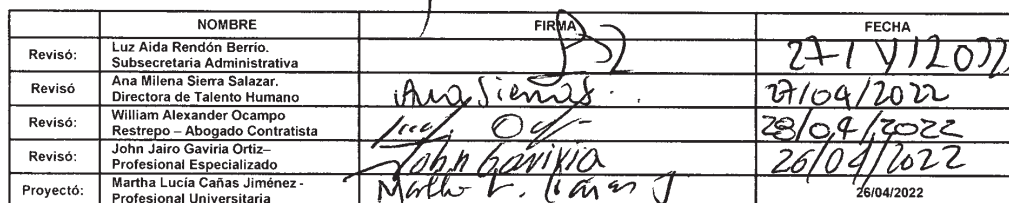 NOMBRE FIRMA FECHA
Revisó: Luz Aida Rendón Berrio.
Subsecretaria Administrativa 27/IV/2022
Revisó Ana Milena Sierra Salazar.
Directora de Talento Humano Ana Sierra S. 27/04/2022
Revisó: William Alexander Ocampo
Restrepo – Abogado Contratista 28/04/2022
Revisó: John Jairo Gaviria Ortiz–
Profesional Especializado John Gaviria 26/04/2022
Proyectó: Martha Lucía Cañas Jiménez -
Profesional Universitaria Martha L. Cañas J 26/04/2022